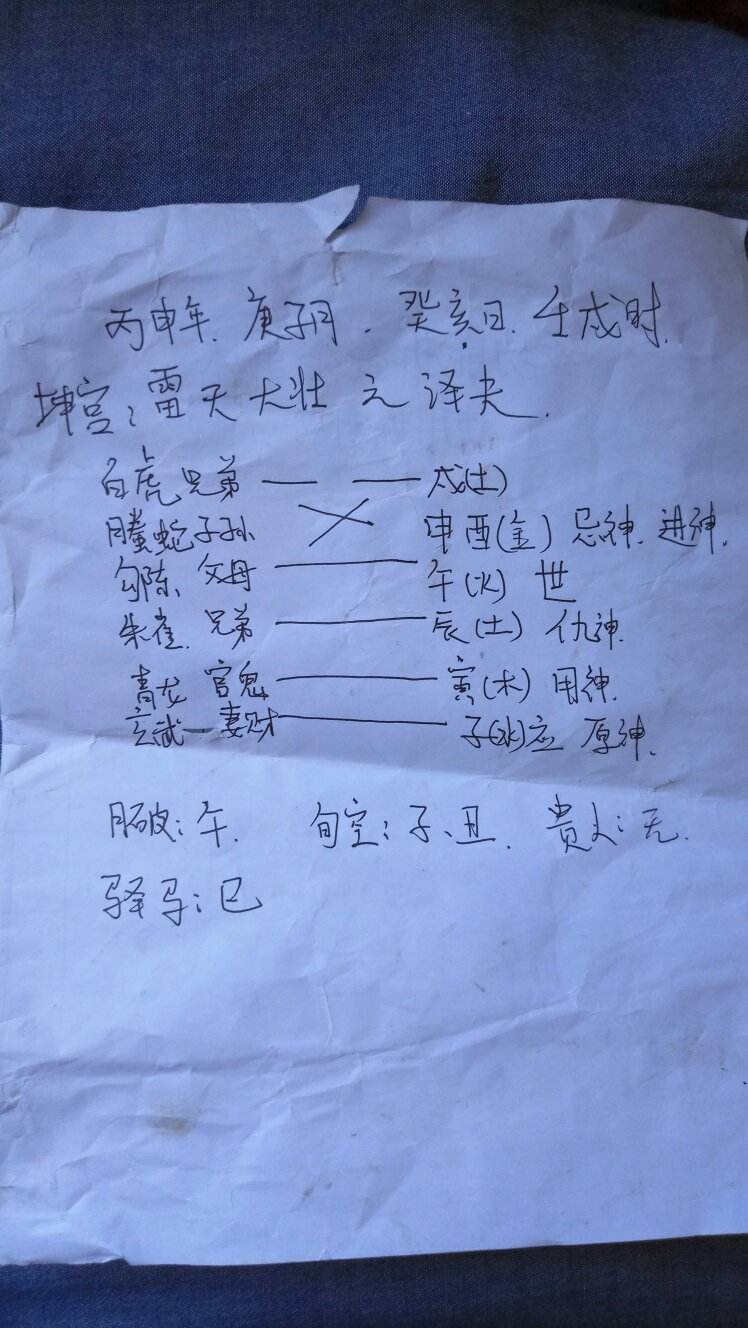 丙申年. 庚子月. 癸亥日. 壬戌时.
坤宫: 雷天大壮 之 泽夬.
白虎 兄弟 戌(土)
螣蛇 子孙 申酉(金) 忌神. 进神.
勾陈. 父母 午(火) 世
朱雀. 兄弟 辰(土) 仇神.
青龙 官鬼 寅(木) 用神.
玄武 妻财 子(水)应 原神.
月破: 午. 旬空: 子、丑. 贵人: 无.
驿马: 巳